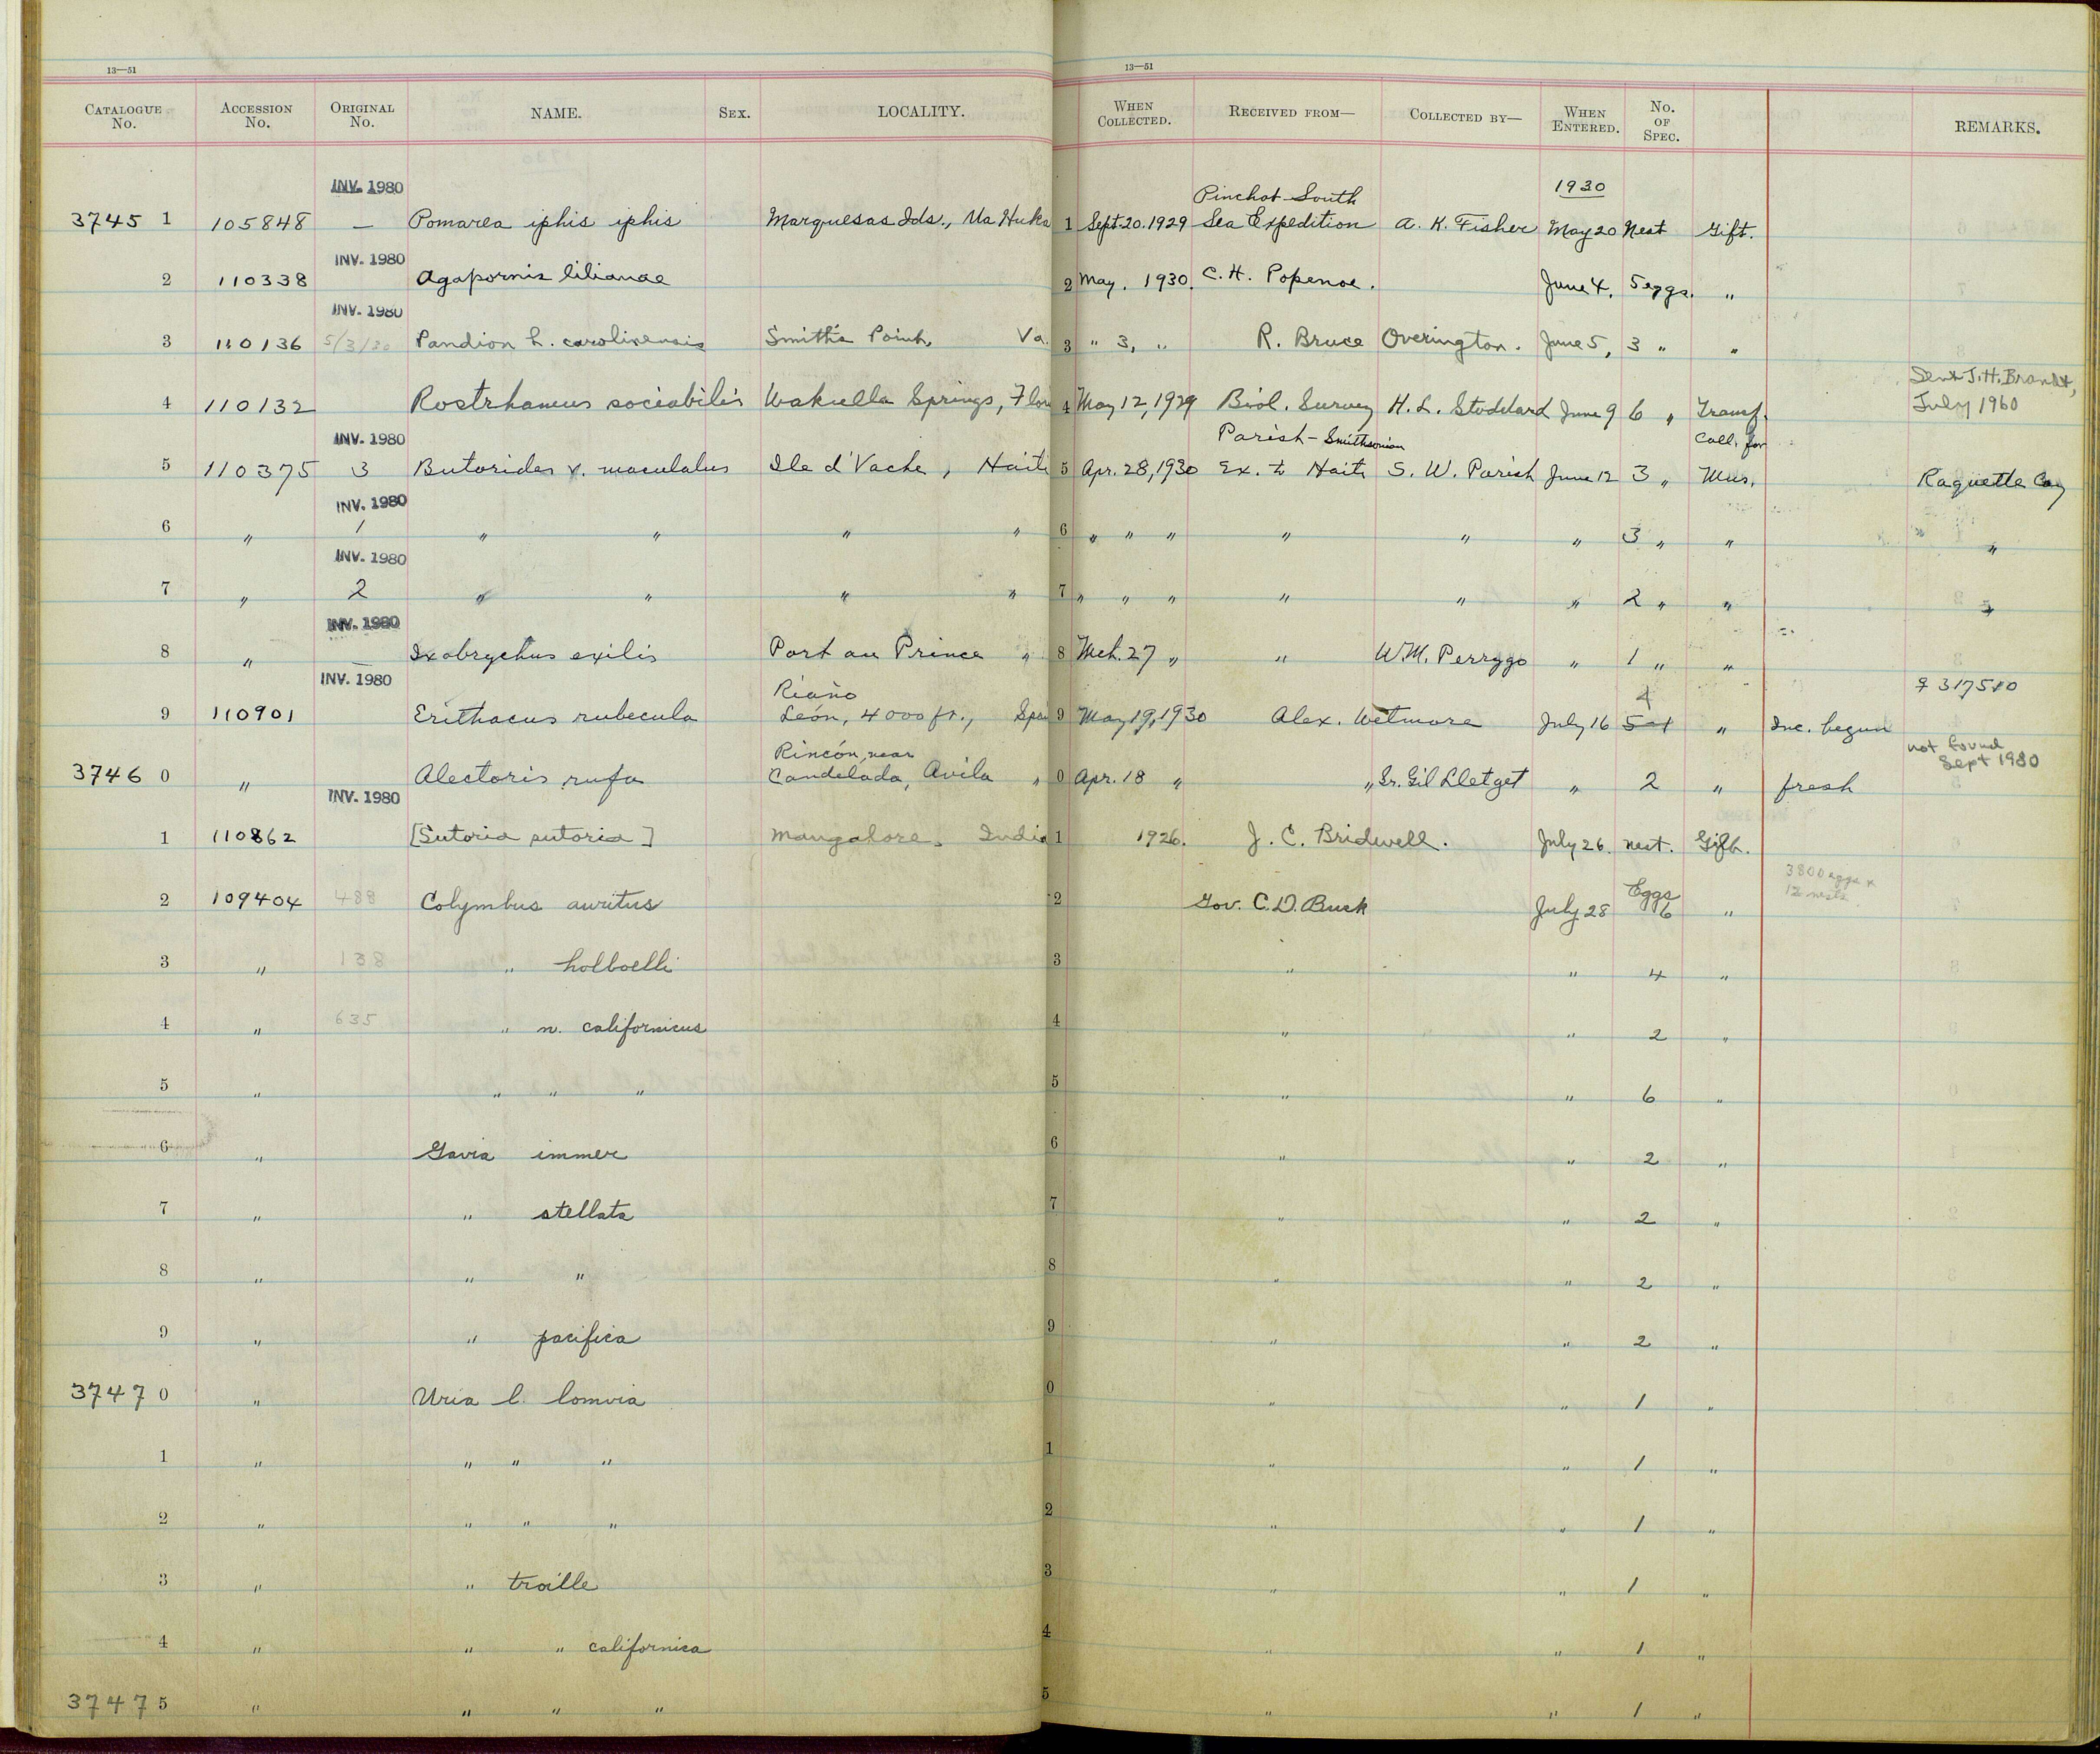 13—51 13—51
CATALOGUE No. ACCESSION No. ORIGINAL No. NAME. SEX. LOCALITY. WHEN COLLECTED. RECEIVED FROM— COLLECTED BY— WHEN ENTERED. No. OF SPEC. REMARKS.
INV. 1980 Pinchot South 1930
3745 1 105848 — Pomarea iphis iphis Marquesas Ids., Ua Huka 1 Sept. 20. 1929 Sea Expedition A. K. Fisher May 20 Nest Gift.
INV. 1980
2 110338 Agapornis lilianae 2 May. 1930. C. H. Popenoe. June 4, 5 eggs. "
INV. 1980
3 110136 5/3/30 Pandion h. carolinensis Smith's Point, Va. 3 " 3, " R. Bruce Overington. June 5, 3 " "
Sent J. H. Brandt,
4 110132 Rostrhamus sociabilis Wakulla Springs, Flor 4 May 12, 1929 Biol. Survey H. L. Stoddard June 9 6 " Transf. July 1960
INV. 1980 Parish-Smithsonian Coll. for
5 110375 3 Butorides v. maculatus Ile à Vache, Haiti 5 Apr. 28, 1930 Ex. to Haiti S. W. Parish June 12 3 " Mus. Raquette Cay
INV. 1980
6 " 1 " " " " 6 " " " " " " 3 " " "
INV. 1980
7 " 2 " " " " 7 " " " " " " 2 " " "
INV. 1980
8 " — Ixobrychus exilis Port au Prince " 8 Mch. 27 " " W. M. Perrygo " 1 " "
INV. 1980 Riaño 4 ♀ 317510
9 110901 Erithacus rubecula León, 4000 ft., Spai 9 May 19, 1930 Alex. Wetmore July 16 5-1 " Inc. begun
Rincón, near not found
3746 0 " Alectoris rufa Candelada, Avila " 0 Apr. 18 " " Sr. Gil Lletget " 2 " fresh Sept 1980
INV. 1980
1 110862 [Sutoria sutoria] Mangalore, India 1 1926. J. C. Bridwell. July 26. nest. Gift.
Eggs 3800 eggs x
12 nests
2 109404 488 Colymbus auritus 2 Gov. C. D. Buck July 28 6 "
3 " 138 " holboelli 3 " " 4 "
4 " 635 " n. californicus 4 " " 2 "
5 " " " " 5 " " 6 "
6 " Gavia immer 6 " " 2 "
7 " " stellata 7 " " 2 "
8 " " " 8 " " 2 "
9 " " pacifica 9 " " 2 "
3747 0 " Uria l. lomvia 0 " " 1 "
1 " " " " 1 " " 1 "
2 " " " " 2 " " 1 "
3 " " troille 3 " " 1 "
4 " " " californica 4 " " 1 "
3747 5 " " " " 5 " " 1 "